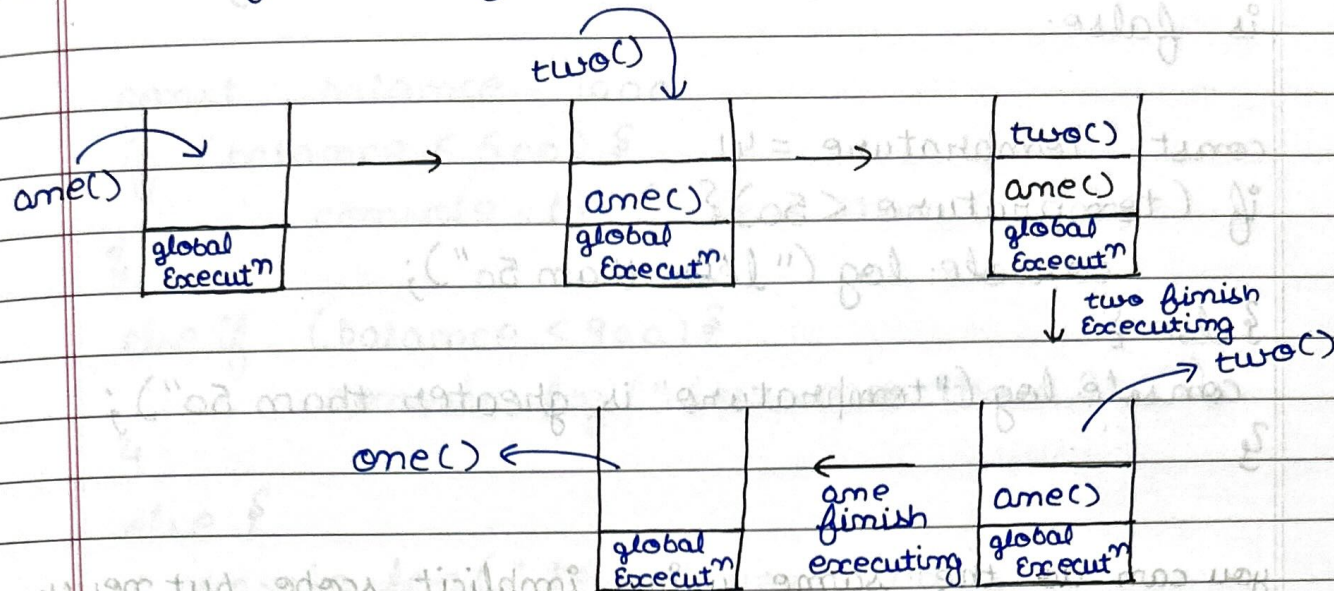 two()
one()
global
Execut^n
one()
global
Execut^n
two()
one()
global
Execut^n
two finish
Executing
two()
one()
global
Execut^n
one
finish
executing
one()
global
Execut^n